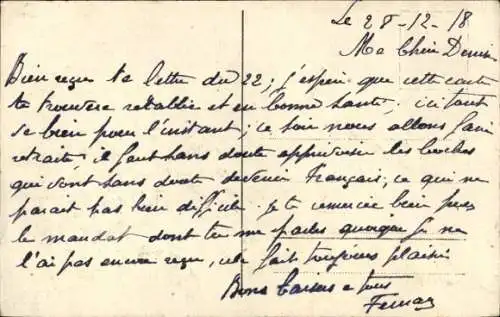 Le 28-12-18
Ma chère Denise
Bien reçu ta lettre du 22; j'espère que cette carte
te trouvera rétablie et en bonne santé; ici tout
se bien pour l'instant; ce soir nous allons faire
retraite, il faut sans doute apprivoiser les boches
qui vont sans doute devenir Français; ce qui ne
parait pas bien difficile. Je te remercie bien pour
le mandat dont tu me parles quoique je ne
l'ai pas encore reçu, cela fait toujours plaisir
Bons baisers a tous
Fernand